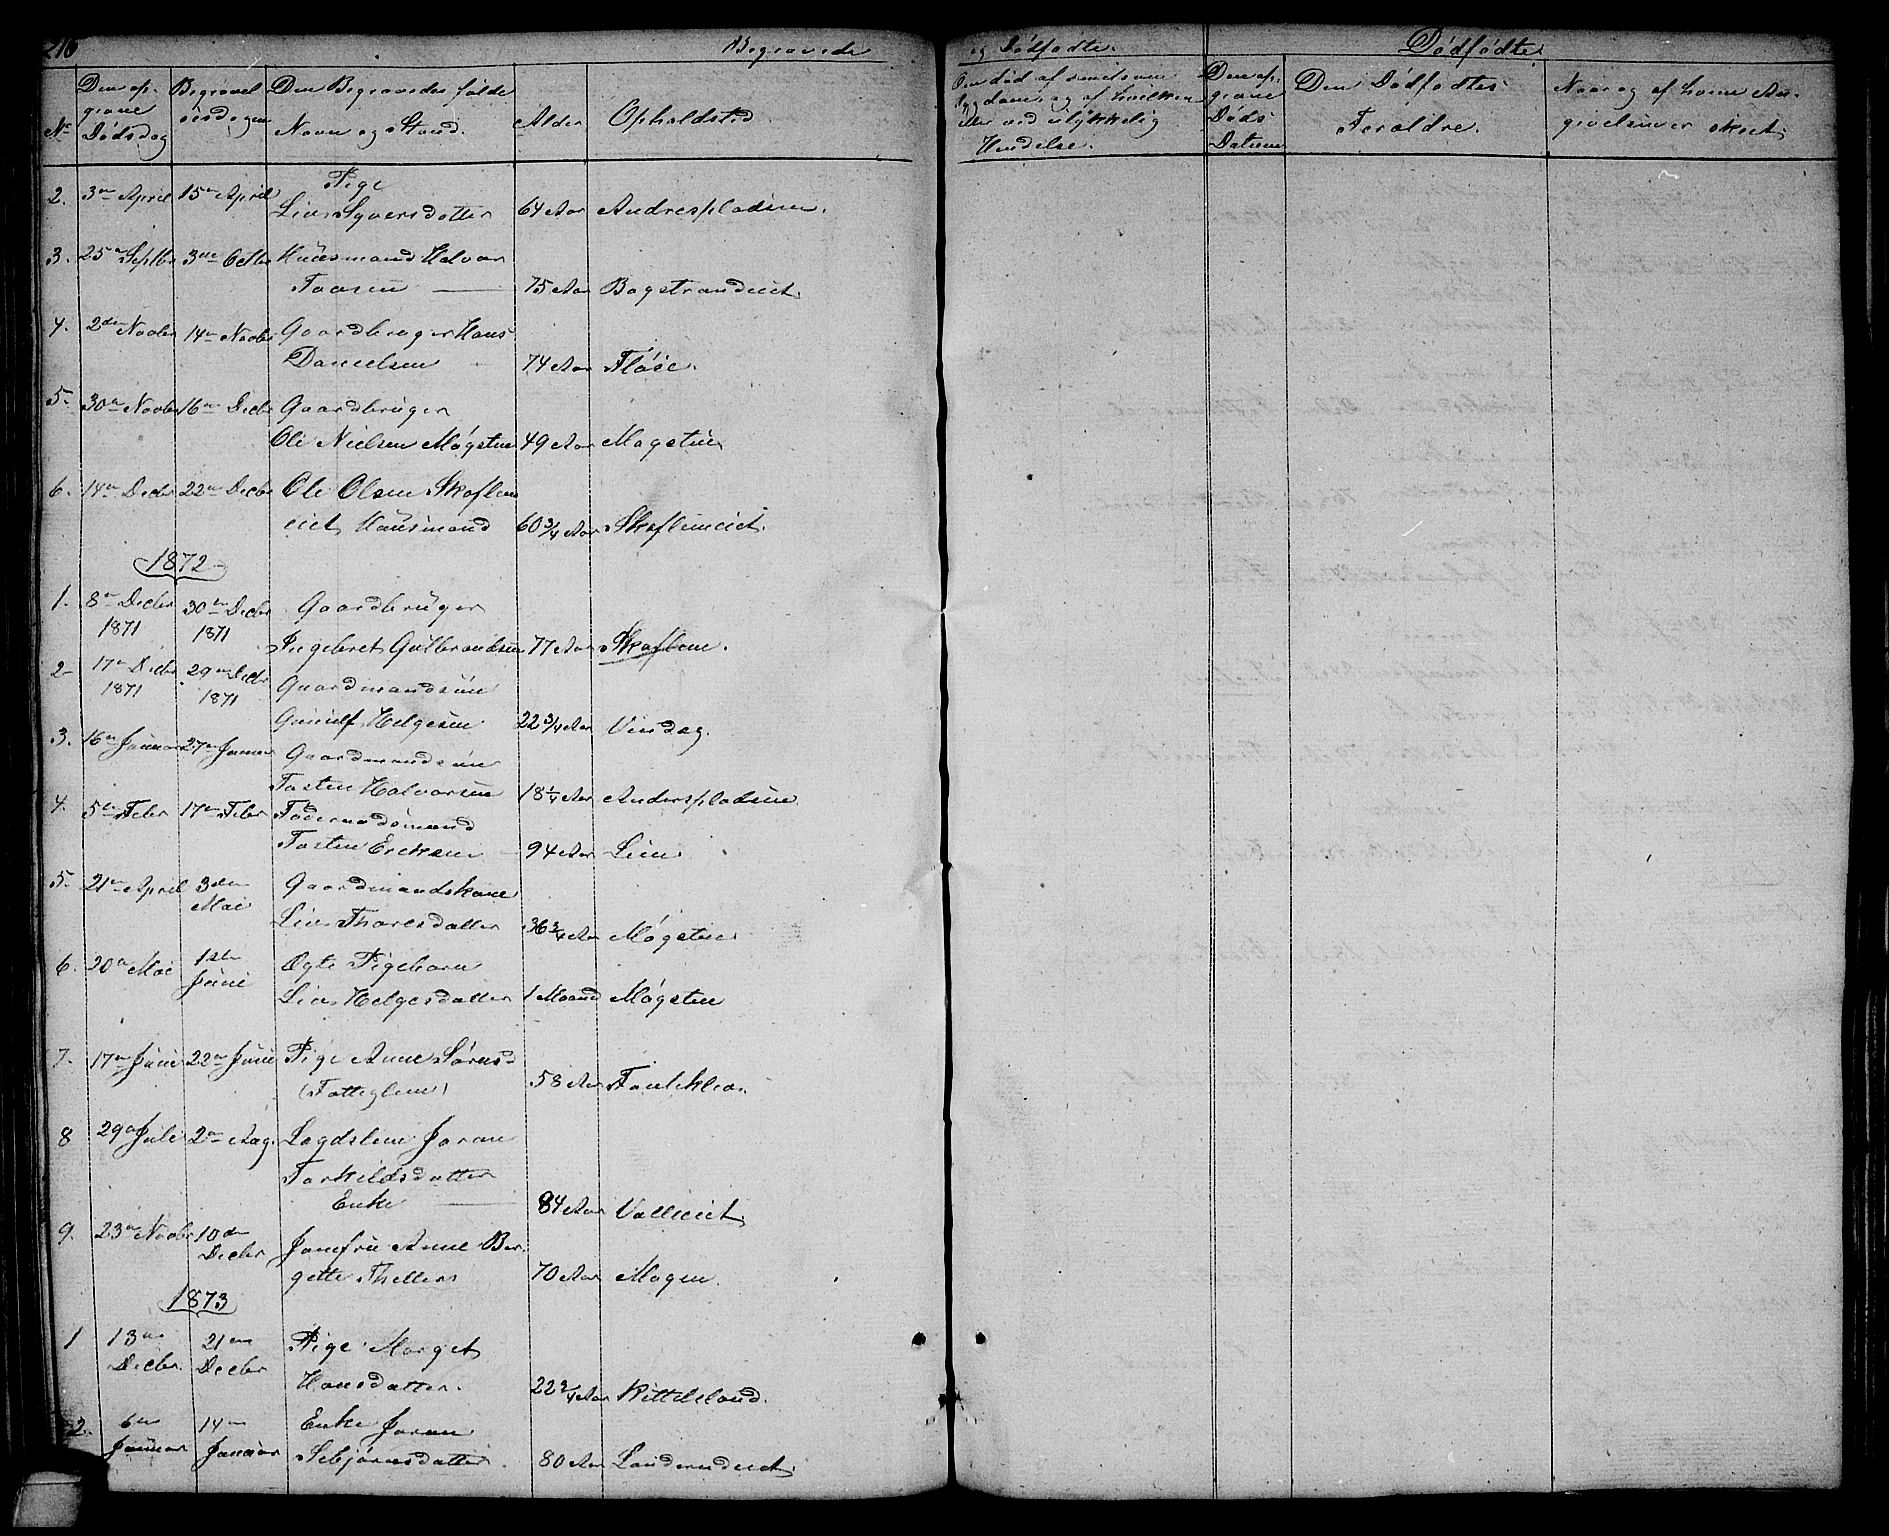 216 Begravede og Dødfødte. Dødfødte.
No Den op- givne Dødsdag
Begravel sesdagen
Den Begravedes fulde Navn og Stand.
Alder
Opholdsted
Om død af smitsom Sygdom, og af hvilken eller ved ulykkelig Hendelse.
Den op- givne Døds Datum
Den Dødfødtes Forældre.
Naar og af hvem An- givelsen er skeet.
2. 3die April 15de April Pige
Liv Syversdatter 64 Aar Andrespladsen.
3. 25de Septbr 3die Octbr Huusmand Halvor
Toosen 75 Aar Bogstrandeiet.
4. 2den Novbr 14de Novbr Gaardbruger Hans
Danielsen 74 Aar Fløse.
5. 30te Novbr 16de Decbr Gaardbruger
Ole Nielsen Møgsteen 49 Aar Møgsteen
6. 14de Decbr 22de Decbr Ole Olsen Skoflem
eiet Huusmand 60 3/4 Aar Skoflemeiet.
1872
1. 8de Decbr 1871 30te Decbr 1871 Gaardbruger
Ingebret Gulbrandsen 77 Aar Skoflem.
2. 17de Decbr 1871 29de Decbr 1871 Gaardmandssøn
Gunulf Helgesen 22 3/4 Aar Vindeg.
3. 16de Januar 27de Januar Gaardmandssøn
Tosten Halvorsen 18 1/4 Aar Anderspladsen
4. 5te Febr 17de Febr Føderaadsmand
Tosten Ericksen 94 Aar Lien.
5. 21de April 3die Mai Gaardmandskone
Liv Thoresdatter 36 3/4 Aar Møgsteen
6. 20de Mai 1ste Juni Ægte Pigebarn
Liv Helgesdatter 1 Maaned Møgsteen
7. 17de Juni 22de Juni Pige Anne Sørensd
(Fattiglem) 58 Aar
8 29de Juli 2den Aug. Lægdslem Joran
Torkildsdatter
Enke 84 Aar Volleeiet.
9. 23de Novbr 10de Decbr Jomfru Anne Ber-
gette Thellers 70 Aar Mogen.
1873
1 13de Decbr. 21de Decbr Pige Margit
Hansdatter. 22 3/4 Aar Kittelsland.
2. 6te Januar 14de Januar Enke Joran
Sebjørnsdatter. 80 Aar